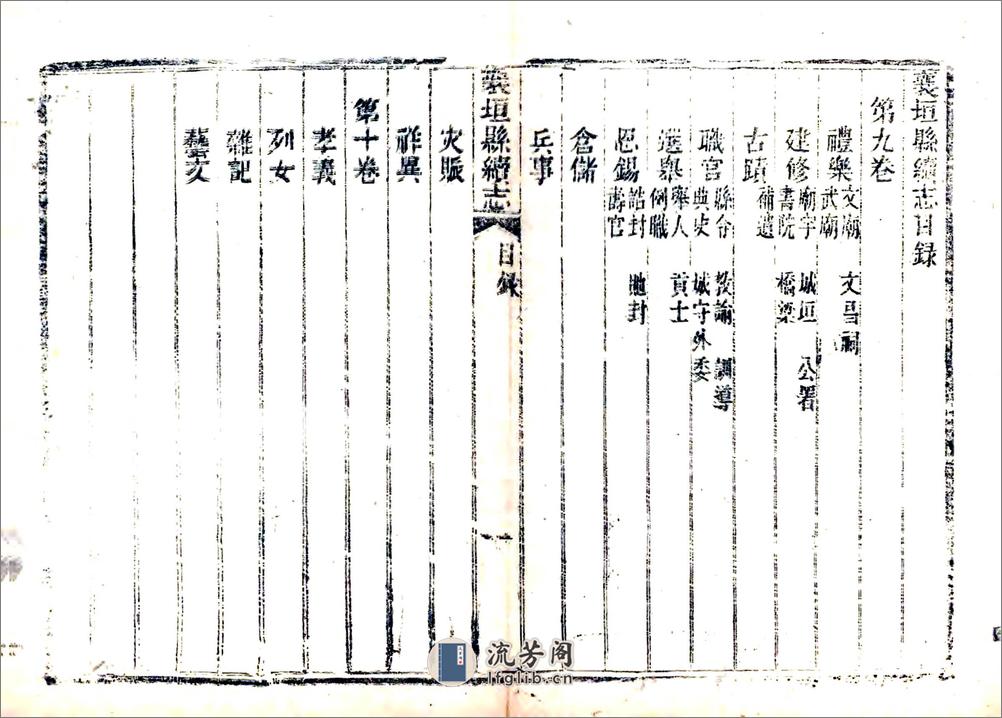 襄垣縣續志目錄
第九卷
禮樂 文廟 文昌祠 武廟
建修 廟宇 城垣 公署 書院 橋梁
古蹟 補遺
職官 縣令 教諭 訓導 典史 城守外委
選舉 舉人 貢士 例職
恩錫 誥封 貤封 壽官
倉儲
兵事
襄垣縣續志 目錄 一
灾賑
祥異
第十卷
孝義
列女
雜記
藝文
流芳阁
lfglib.cn